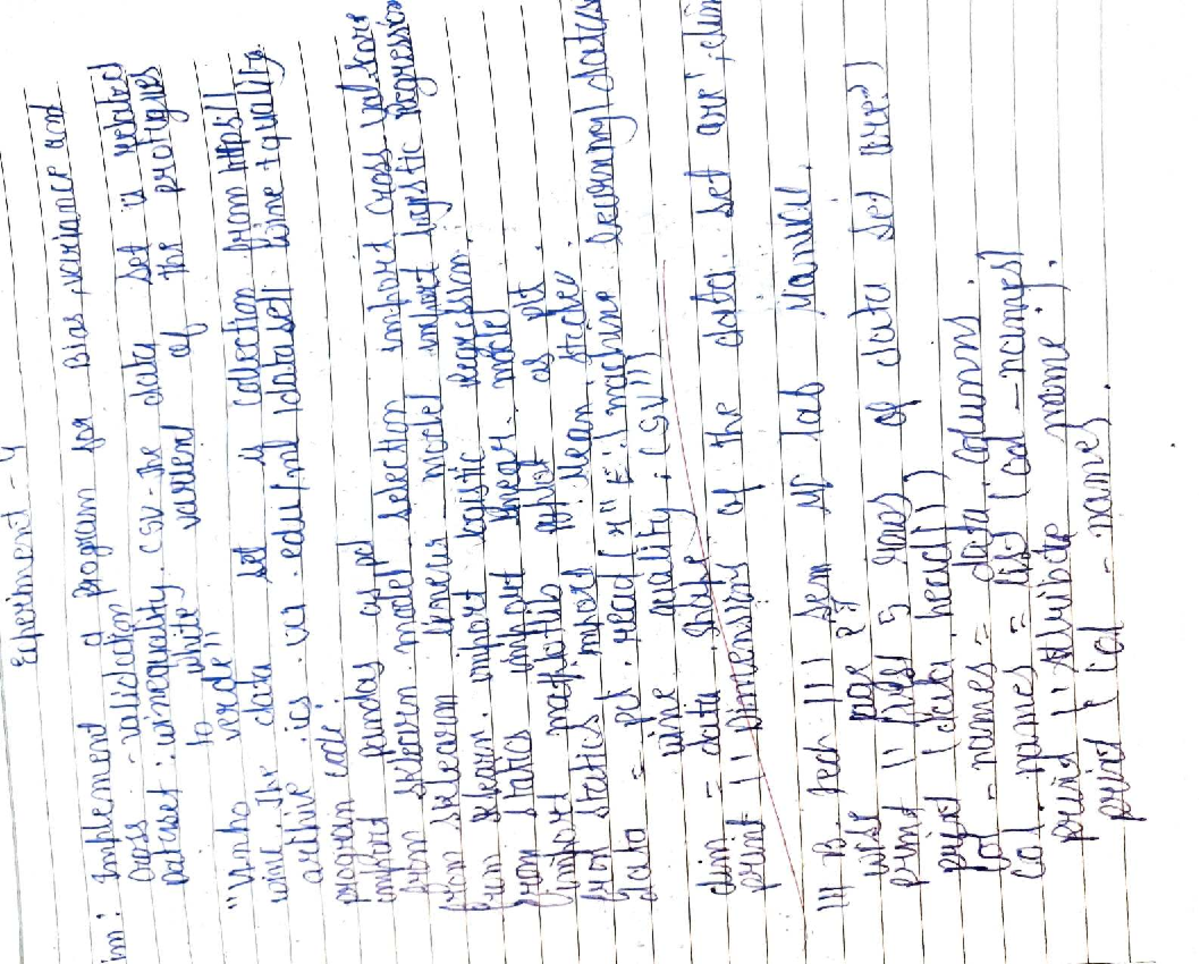 Experiment - 4
im : Implement a program for Bias, variance and
cross - validation
Dataset : winequality. CSV - The data set is related
to white varient of the protigues
"Vinho verde"
wine. The data set if collection from https://
archive . ics . uci . edu/ml /dataset wine + quality.
program code :
import pandas as pd
from sklearn. model selection import cross val-score
from sklearn linear - model import logistic Regression
from sklearn. import logistic Regression.
from statics import linear - model
import matplotlib pyplot as plt .
from statics import Mean, stadev.
data = pd. read ( r" E: \ machine learning/ datas
wine quality. CSV"))
dim = data . shape
print (" Dimensions of the data set are", dim
III B. Tech III sem ML lab Manual.
page
print (" first 5 rows of data set are")
print (data. head())
col - names = data. columns .
col names = list (col - names)
print ( " Attribute name ').
print ( col - names .